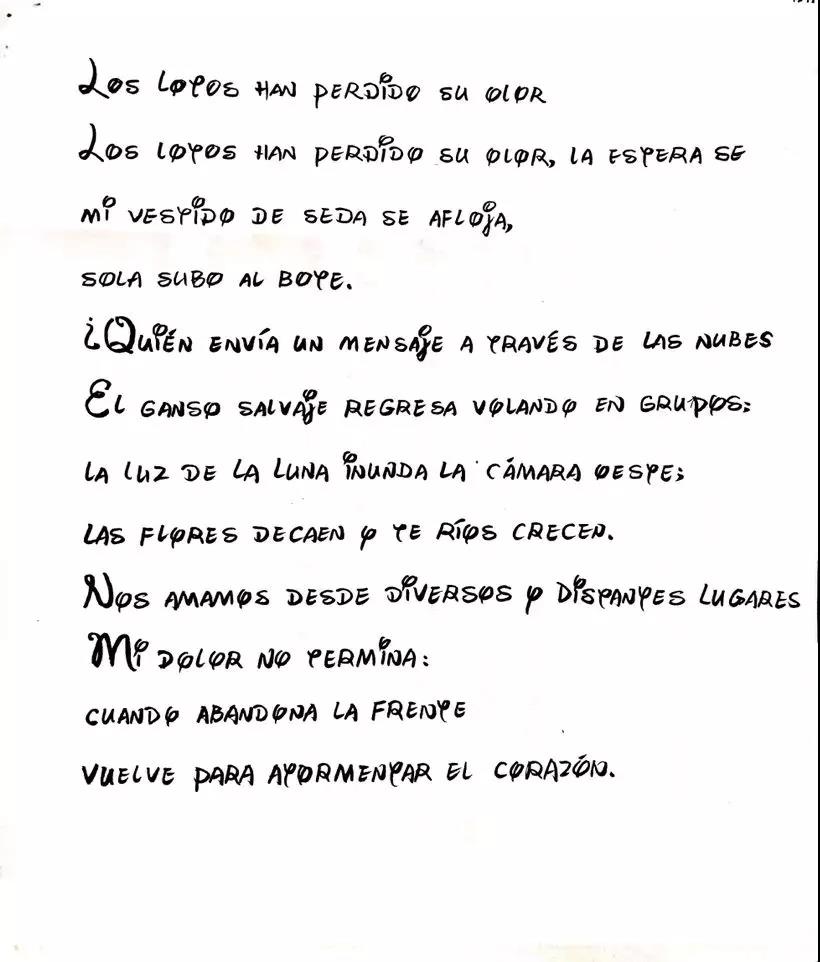 Los lotos han perdido su olor
Los lotos han perdido su olor, la estera se
mi vestido de seda se afloja,
sola subo al bote.
¿Quién envía un mensaje a través de las nubes
El ganso salvaje regresa volando en grupos;
la luz de la luna inunda la cámara oeste;
las flores decaen y te ríos crecen.
Nos amamos desde diversos y distantes lugares
Mi dolor no termina:
cuando abandona la frente
vuelve para atormentar el corazón.